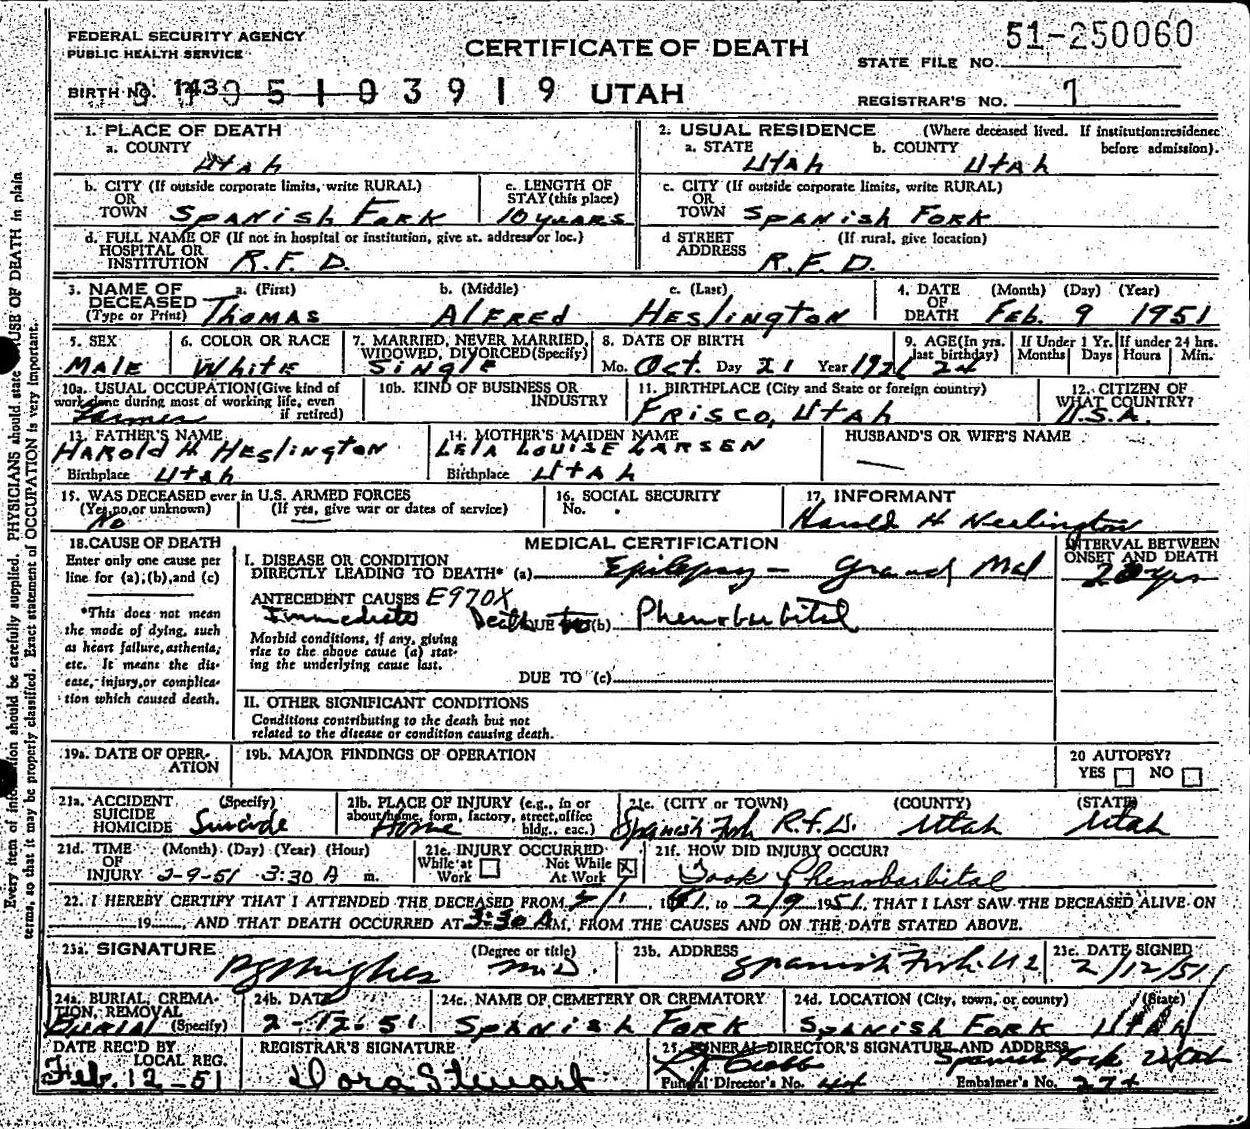 FEDERAL SECURITY AGENCY
PUBLIC HEALTH SERVICE
CERTIFICATE OF DEATH
51-250060
STATE FILE NO.
BIRTH NO. 143 05103919 UTAH
REGISTRAR'S NO. 7
1. PLACE OF DEATH
a. COUNTY
Utah
2. USUAL RESIDENCE (Where deceased lived. If institution:residence before admission).
a. STATE Utah b. COUNTY Utah
b. CITY (If outside corporate limits, write RURAL)
OR
TOWN Spanish Fork
c. LENGTH OF
STAY (this place)
10 years
c. CITY (If outside corporate limits, write RURAL)
OR
TOWN Spanish Fork
d. FULL NAME OF (If not in hospital or institution, give st. address or loc.)
HOSPITAL OR
INSTITUTION R.F.D.
d STREET (If rural, give location)
ADDRESS R.F.D.
3. NAME OF a. (First) b. (Middle) c. (Last)
DECEASED
(Type or Print) Thomas Alfred Heslington
4. DATE (Month) (Day) (Year)
OF
DEATH Feb. 9 1951
5. SEX
Male
6. COLOR OR RACE
White
7. MARRIED, NEVER MARRIED,
WIDOWED, DIVORCED (Specify)
Single
8. DATE OF BIRTH
Mo. Oct. Day 21 Year 1926
9. AGE (In yrs.
last birthday)
24
If Under 1 Yr.
Months Days
If under 24 hrs.
Hours Min.
10a. USUAL OCCUPATION (Give kind of
work done during most of working life, even
if retired)
Farmer
10b. KIND OF BUSINESS OR
INDUSTRY
11. BIRTHPLACE (City and State or foreign country)
Frisco, Utah
12. CITIZEN OF
WHAT COUNTRY?
U.S.A.
13. FATHER'S NAME
Harold H Heslington
Birthplace Utah
14. MOTHER'S MAIDEN NAME
Lela Louise Larsen
Birthplace Utah
HUSBAND'S OR WIFE'S NAME
—
15. WAS DECEASED ever in U.S. ARMED FORCES
(Yes, no, or unknown) (If yes, give war or dates of service)
No —
16. SOCIAL SECURITY
No.
17. INFORMANT
Harold H Heslington
18. CAUSE OF DEATH
Enter only one cause per
line for (a), (b), and (c)
*This does not mean
the mode of dying, such
as heart failure, asthenia,
etc. It means the dis-
ease, injury, or complica-
tion which caused death.
MEDICAL CERTIFICATION
INTERVAL BETWEEN
ONSET AND DEATH
I. DISEASE OR CONDITION
DIRECTLY LEADING TO DEATH* (a) Epilepsy - Grand Mal
20 yrs
ANTECEDENT CAUSES E970X
Immediate Death DUE to (b) Phenobarbital
Morbid conditions, if any, giving
rise to the above cause (a) stat-
ing the underlying cause last.
DUE TO (c)
II. OTHER SIGNIFICANT CONDITIONS
Conditions contributing to the death but not
related to the disease or condition causing death.
19a. DATE OF OPER-
ATION
19b. MAJOR FINDINGS OF OPERATION
20 AUTOPSY?
YES NO
21a. ACCIDENT (Specify)
SUICIDE
HOMICIDE Suicide
21b. PLACE OF INJURY (e.g., in or
about home, form, factory, street, office
bldg., eac.)
Home
21c. (CITY or TOWN) (COUNTY) (STATE)
Spanish Fork R.F.D. Utah Utah
21d. TIME (Month) (Day) (Year) (Hour)
OF
INJURY 2-9-51 3:30 A m.
21e. INJURY OCCURRED
While at Work
Not While At Work X
21f. HOW DID INJURY OCCUR?
Took Phenobarbital
22. I HEREBY CERTIFY THAT I ATTENDED THE DECEASED FROM 1, to 2/9 1951, THAT I LAST SAW THE DECEASED ALIVE ON
19, AND THAT DEATH OCCURRED AT 3:30 A M, FROM THE CAUSES AND ON THE DATE STATED ABOVE.
23a. SIGNATURE (Degree or title)
Hughes M.D.
23b. ADDRESS
Spanish Fork
23c. DATE SIGNED
2/12/51
24a. BURIAL, CREMA-
TION, REMOVAL
(Specify)
Burial
24b. DATE
2-12-51
24c. NAME OF CEMETERY OR CREMATORY
Spanish Fork
24d. LOCATION (City, town, or county) (State)
Spanish Fork Utah
DATE REC'D BY
LOCAL REG.
Feb. 12-51
REGISTRAR'S SIGNATURE
Dora Stewart
25. FUNERAL DIRECTOR'S SIGNATURE AND ADDRESS
Spanish Fork Utah
Funeral Director's No.
Embalmer's No.
Every item of information should be carefully supplied. PHYSICIANS should state CAUSE OF DEATH in plain
terms, so that it may be properly classified. Exact statement of OCCUPATION is very important.